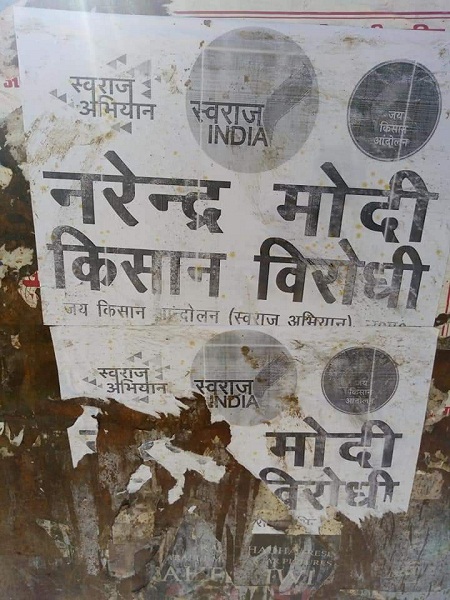 स्वराज अभियान
स्वराज INDIA
जय किसान आंदोलन
नरेन्द्र मोदी
किसान विरोधी
जय किसान आन्दोलन (स्वराज अभियान)
स्वराज अभियान
स्वराज INDIA
जय किसान आंदोलन
मोदी
विरोधी